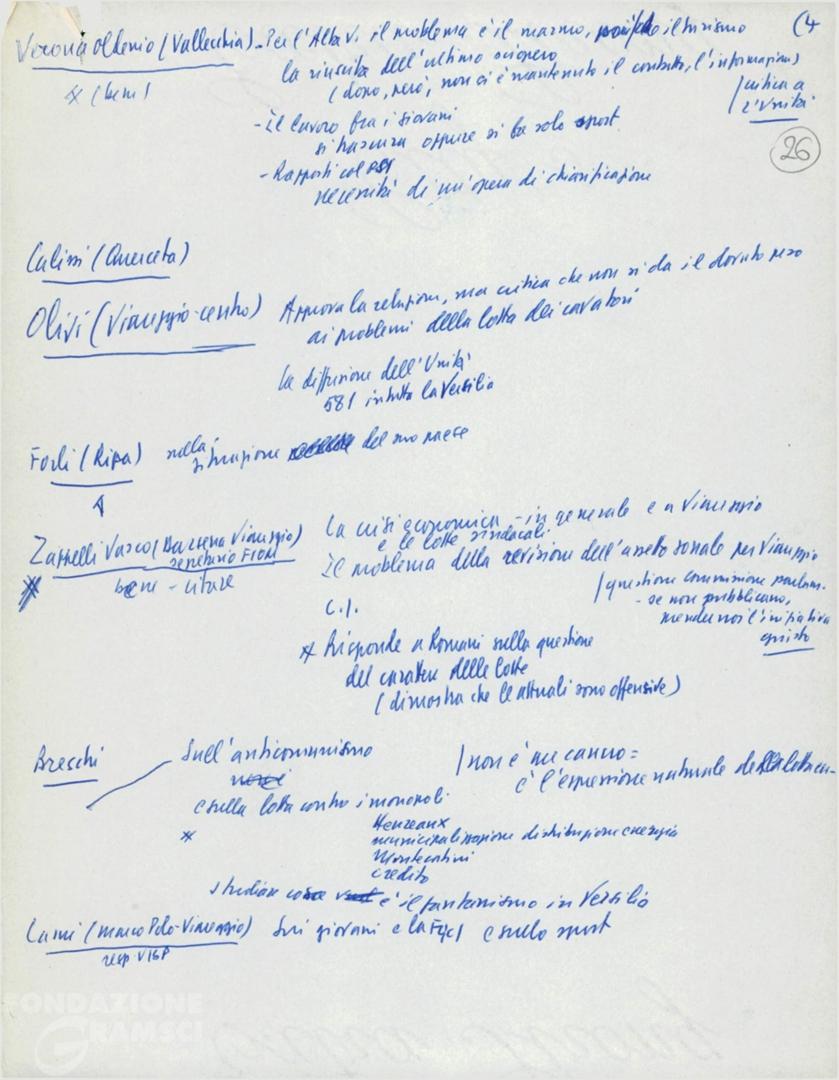 (4
Verona Oldenio (Vallecchia) - Per l'Alta V. il problema è il marmo, poi il turismo
* (bene)
la riuscita dell'ultimo sciopero
(dopo, però, non si è mantenuto il contatto, l'informazione)
/ critica a
l'Unità
26
- Il lavoro fra i giovani
si trascura oppure si fa solo sport
- Rapporti col PSI
necessità di un'opera di chiarificazione
Calissi (Querceta)
Olivi (Viareggio-centro) Approva la relazione, ma critica che non si dà il dovuto peso
ai problemi della lotta dei cavatori
la diffusione dell'Unità
581 in tutta la Versilia
Forli (Ripa) sulla situazione del suo paese
Vasco (Darsena Viareggio)
segretario FIOM
bene - citare
La crisi economica - in generale e a Viareggio
e le lotte sindacali
Il problema della revisione dell'assetto zonale per Viareggio
/ questione commissione parlam.
- se non pubblicano,
prender noi l'iniziativa
giusto
C.I.
* Risponde a Romani sulla questione
del carattere delle lotte
(dimostra che le attuali sono offensive)
Breschi
Sull'anticomunismo
/ non è un cancro =
è l'espressione naturale della lotta
e sulla lotta contro i monopoli
*
Henraux
municipalizzazione distribuzione energia
Montecatini
credito
studiare come è il fanfanismo in Versilia
Lami (Marco Polo-Viareggio) Sui giovani e la FGCI e sullo sport
resp. UISP
FONDAZIONE
GRAMSCI